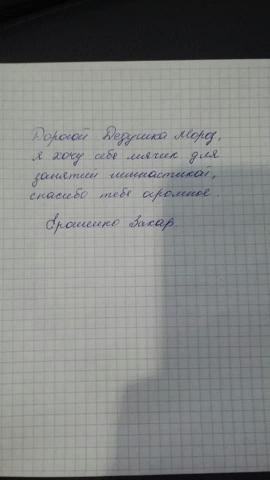 Дорогой Дедушка Мороз,
я хочу себе мячик для
занятий гимнастикой,
спасибо тебе огромное.
Ерошенко Захар.